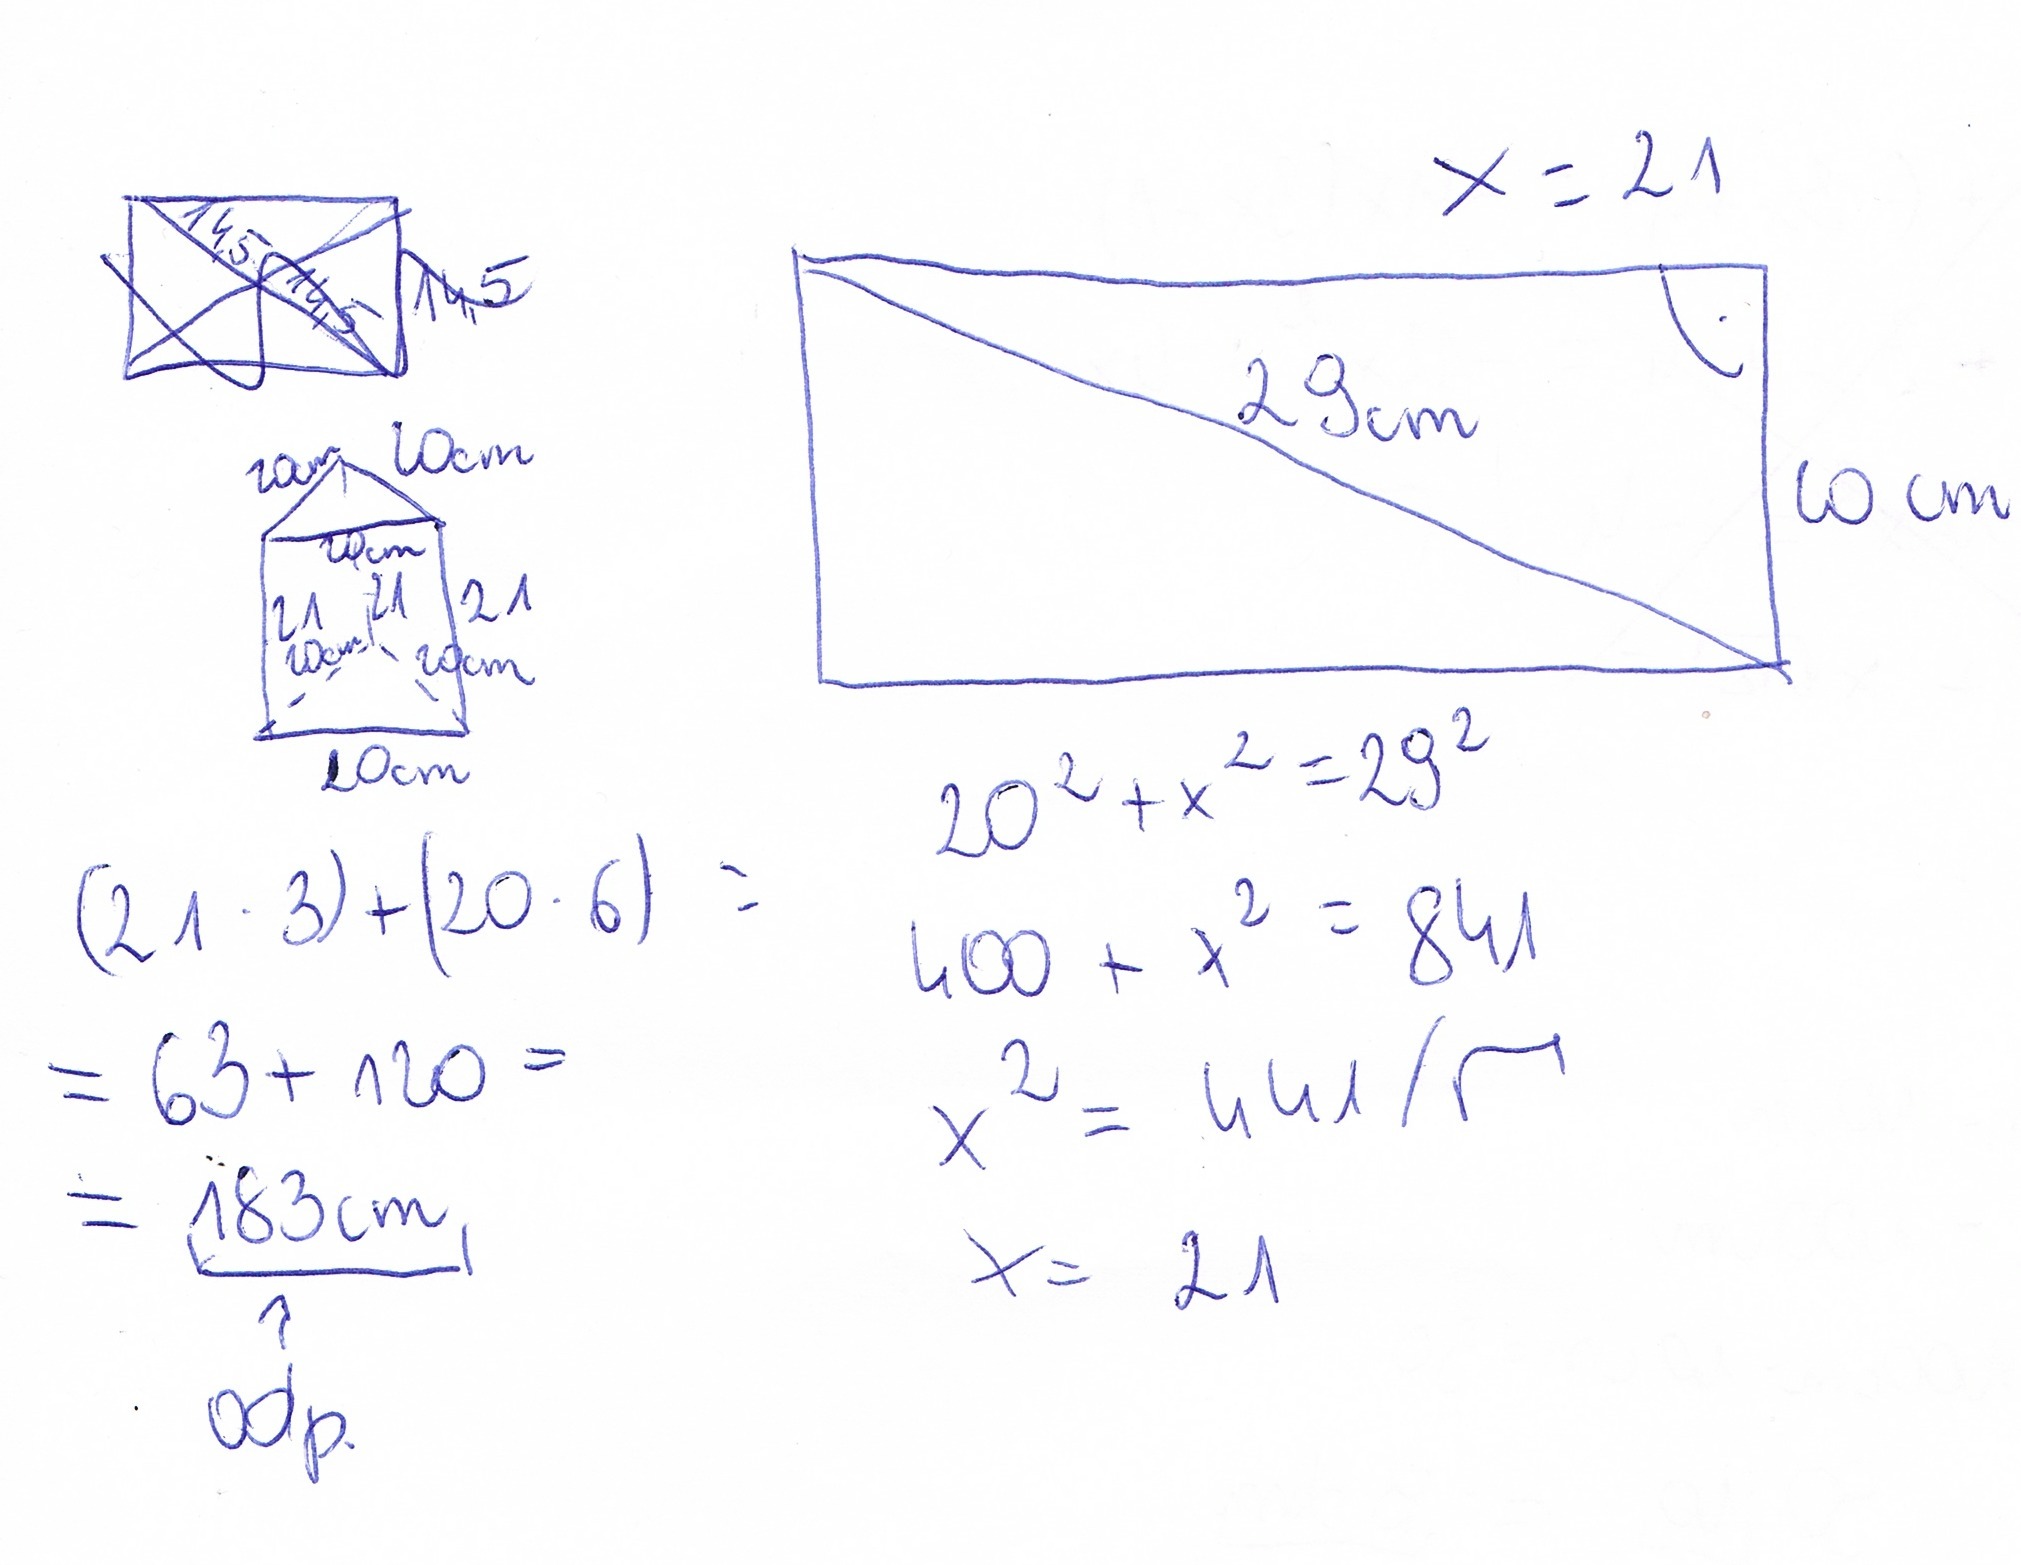 14,5
14,5
14,5
20cm 20cm
20cm
21 21 21
20cm 20cm
20cm
(21 · 3) + (20 · 6) =
= 63 + 120 =
= 183cm
odp.
x = 21
29cm
20 cm
20² + x² = 29²
400 + x² = 841
x² = 441 /√
x = 21